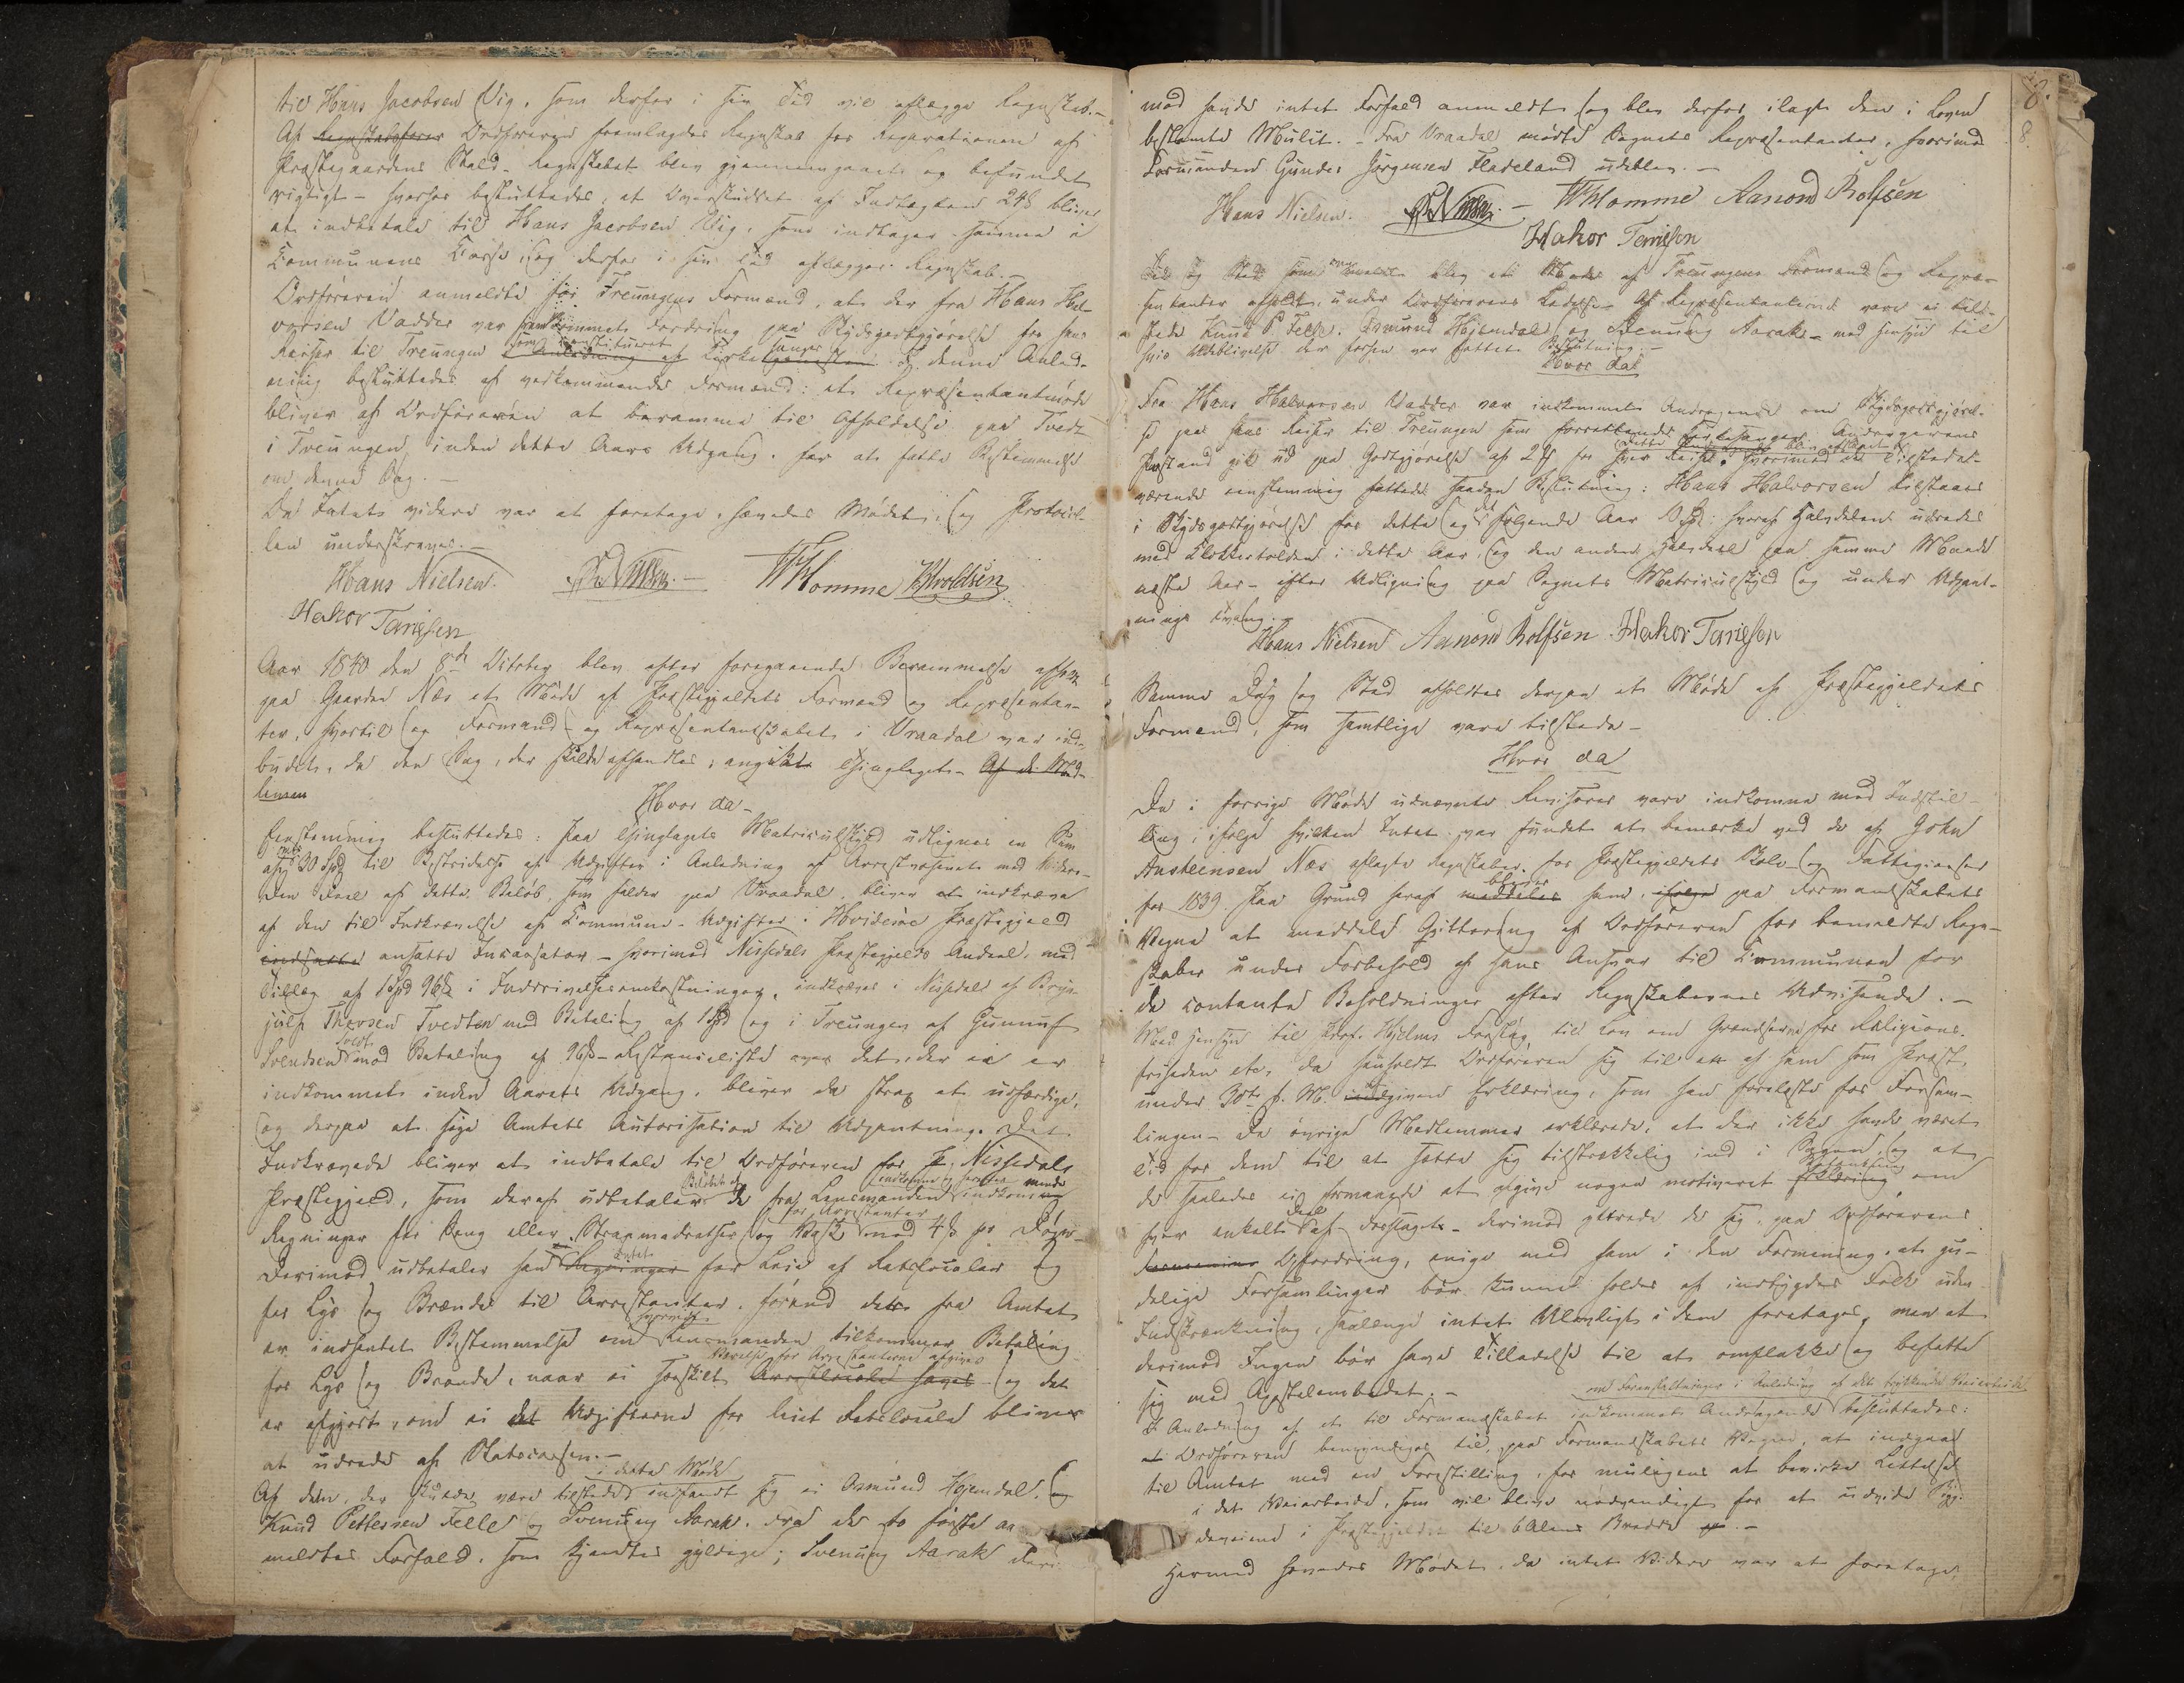 til Hans Jacobsen Vig, som derfor i sin Tid vil aflægge Regnskab.-
Af Regnskabsfører Ordføreren fremlagdes Regnskab for Reparationen af
Præstegaardens Stald. Regnskabet blev gjennemgaaet og befundet
rigtigt - hvorfor besluttedes, at Overskudet af Indtægten 24ß bliver
at indbetale til Hans Jacobsen Vig, som indtager samme i
Communens Casse, og derfor i sin Tid aflægger Regnskab.-
Ordføreren anmeldte for Treungens Formænd, at der fra Hans Hal-
vorsen Vadder var fremkommet Fordring paa Skydsgodtgjørelse for hans
Reiser til Treungen som constitueret Kirkesanger. I denne Anled-
ning besluttedes af vedkommende Formænd: at Repræsentantmøde
bliver af Ordføreren at beramme til Afholdelse paa Tvedt
i Treungen, inden dette Aars Udgang, for at fatte Bestemmelse
om denne Sag.-
Da Intet videre var at foretage, hævedes Mødet, og Protocol-
len underskreves.-
Hans Nielsen. THomme KHvoldsen
Hakor Tarjesen
Aar 1840 den 8de Octbr blev efter foregaaende Berammelse afholdt
paa Gaarden Næs et Møde af Præstegjeldets Formænd og Repræsentan-
ter, hvortil og Formand- og Repræsentantskabet i Vraadal var ind-
budet, da den Sag, der skulde afhandles, angik Thinglaget. Af de Med-
lemmer
Hvor da-
Eenstemmig besluttedes: Paa Thinglagets Matriculskyld udlignes en Sum
af 30 Spd til Bestridelse af Udgifter i Anledning af Arrestvæsenet med Videre-
Den Deel af dette Beløb, som falder paa Vraadal, bliver at indkræve
af den til Indkrævelse af Commune-Udgifter i Hvideseie Præstegjeld
indsatte ansatte Incassator - hvorimod Nissedals Præstegjelds Andeel, med
Tillæg af 1 Spd 96ß i Inddrivelsesomkostninger, indkræves i Nissedal af Bryn-
julf Thorsen Tvedten mod Betaling af 1 Spd og i Treungen af Gunnuf
Svendsen Tvedt mod Betaling af 96ß - Restanceliste over det, der ei er
indkommet inden Aarets Udgang, bliver da strax at udfærdige,
og derpaa at søge Amtets Autorisation til Udpantning. Det
Indkrævede bliver at indbetale til Ordføreren for Nissedals
Præstegjeld, som deraf udbetaler Beløbet af de fra Lensmanden indkomne og herefter indkommende
Regninger for Seng eller Straamadratser og Vask for Arrestanter med 4ß pr Døgn-
Derimod udbetaler han Intet for Leie af Retslocaler og
for Lys og Brænde til Arrestanter, førend det fra Amtet
er indhentet Bestemmelse om hvorvidt Lensmanden tilkommer Betaling
for Lys og Brænde, naar ei særskilt Værelse for Arrestanterne afgives og det
er afgjort, om ei Udgifterne for leiet Retslocale bliver
at udrede af Statscassen.-
Af dem, der skulde være tilstede i dette Møde indfandt sig ei Asmund Hejemdal, og
Knud Pettersen Felle og Svenung Aarak. For de to første an-
meldtes Forfald, som kjendtes gyldige; Svenung Aarak deri-
8.
8.
mod havde intet Forfald anmeldt og blev derfor ilagt den i Loven
bestemte Mulct. - Fra Vraadal mødte Sognets Repræsentanter, hvorimod
Formanden Gunder Jørgensen Fladeland udeblev.-
Hans Nielsen. THomme Aanond Rolfsen
Hakor Tarjesen
Tid og Sted som ommeldt blev et Møde af Treungens Formænd og Repræ-
sentanter afholdt, under Ordførerens Ledelse. Af Repræsentanterne vare ei tilste-
stede Knud P. Felle, Asmund Hejemdal, og Svenung Aarak - med Hensyn til
hvis Udeblivelse der forhen var fattet Beslutning.-
Hvor da
Fra Hans Halvorsen Vadder var indkommet Andragende om Skydsgodtgjørel-
se paa hans Reiser til Treungen som forrettende Kirkesanger. Andragerens
Paastand gik ud paa Godtgjørelse af 2 ß for hver Reise. Hvorimod de Tilstedevæ-
værende eenstemmig fattede saadan Beslutning: Hans Halvorsen tilstaaes
i Skydsgodtgjørelse for dette og det følgende Aar hvoraf Halvdelen udredes
med Klokkertolden i dette Aar, og den anden Halvdeel paa samme Maade
næste Aar - efter Udligning paa Sognets Matriculskyld og under Udpant-
nings Tvang.-
Hans Nielsen Aanond Rolfsen Hakor Tarjesen
Samme Dag og Sted afholdtes derpaa et Møde af Præstegjeldets
Formænd, som samtlige vare tilstede-
Hvor da
De i forrige Møde udnævnte Revisorer vare indkomne med Indstil-
ling, ifølge hvilken Intet var fundet at bemærke ved de af John
Austeensen Næs aflagte Regnskaber for Præstegjeldets Skole- og Fattigvæsen
for 1839. Paa Grund heraf bliver ham, ifølge paa Formandskabets
Vegne at meddele Qvittering af Ordføreren for bemeldte Regn-
skaber under Forbehold af hans Ansvar til Communen for
de contante Beholdninger efter Regnskabernes Udvisende.-
Med Hensyn til Prof. Hjelms Forslag til Lov om Grændserne for Religions-
friheden etc, da henholdt Ordføreren sig til en af ham som Præst,
under 30te f. M. afgiven Erklæring, som han forelæste for Forsam-
lingen - De øvrige Medlemmer erklærede, at der ikke havde været
Tid for dem til at sætte sig tilstrækkelig ind i Sagen, og at
de saaledes ei formaaede at afgive nogen motiveret Betænkning om
hver enkelt Deel af Forslaget - derimod yttrede de sig, paa Ordførerens
Formening Opfordring, enige med ham i den Formening, at gu-
delige Forsamlinger bør kunne holdes af indbygdes Folk uden
Indskrænkning, saalænge intet Ulovligt i dem foretages, men at
derimod Ingen bør have Tilladelse til at omflakke og befatte
sig med Apostelembedet.-
om Foranstaltninger i Anledning af det trykkende Veiarbeide
I Anledning af et til Formandskabet indkommet Andragende besluttedes:
at Ordføreren bemyndiges til, paa Formandskabets Vegne, at indgaae
til Amtet med en Forestilling, for muligens at bevirke Lettelse
i det Veiarbeide, som vil blive nødvendigt for at udvide Byg-
deveiene i Præstegjeldet til 6 Alens Bredde.-
Hermed hævedes Mødet, da intet Videre var at foretage,